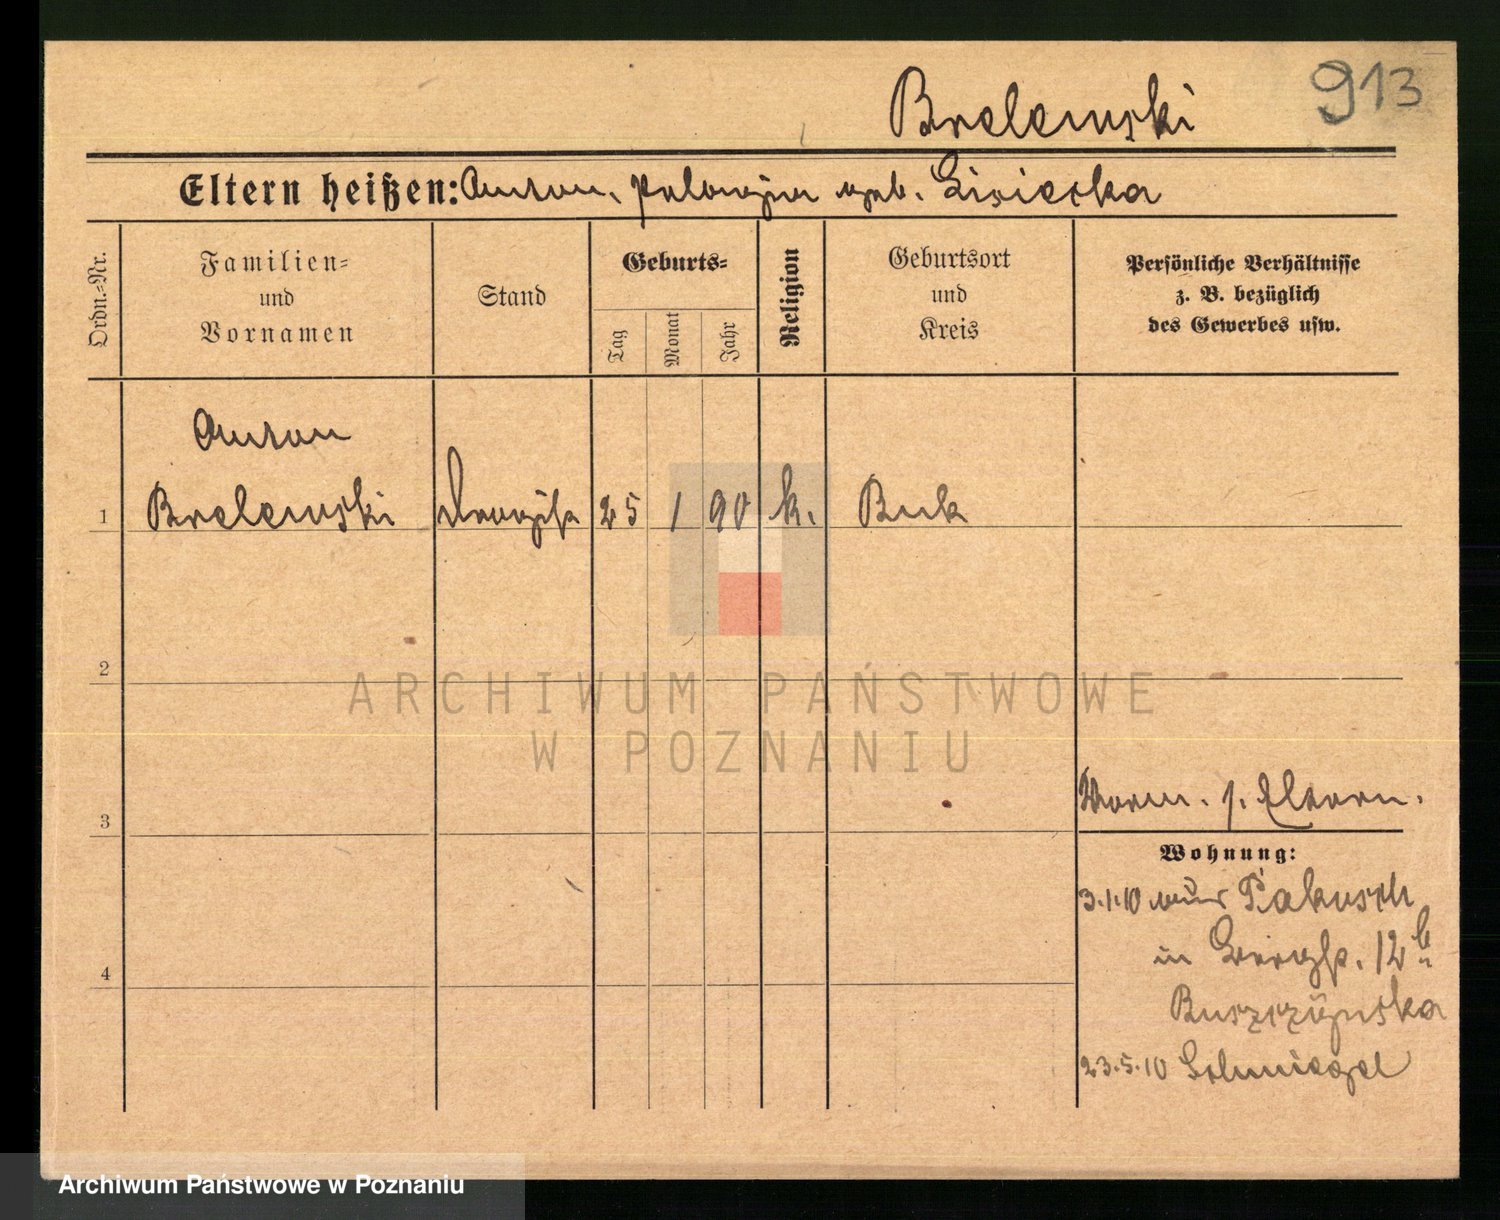 913
Brelewski
Eltern heißen: Anton, Pelagia geb. Lisiecka
Ordn.-Nr.
Familien-
und
Vornamen
Stand
Geburts-
Tag
Monat
Jahr
Religion
Geburtsort
und
Kreis
Persönliche Verhältnisse
z. B. bezüglich
des Gewerbes usw.
Anton
1 Brelewski Drogist 25 1 90 k. Buk
2
3
Vorm. s. Eltern.
Wohnung:
3.1.10 aus Pakosch
in 12b
4
Buszczyńska
23.5.10 Schmiegel
ARCHIWUM PAŃSTWOWE
W POZNANIU
Archiwum Państwowe w Poznaniu